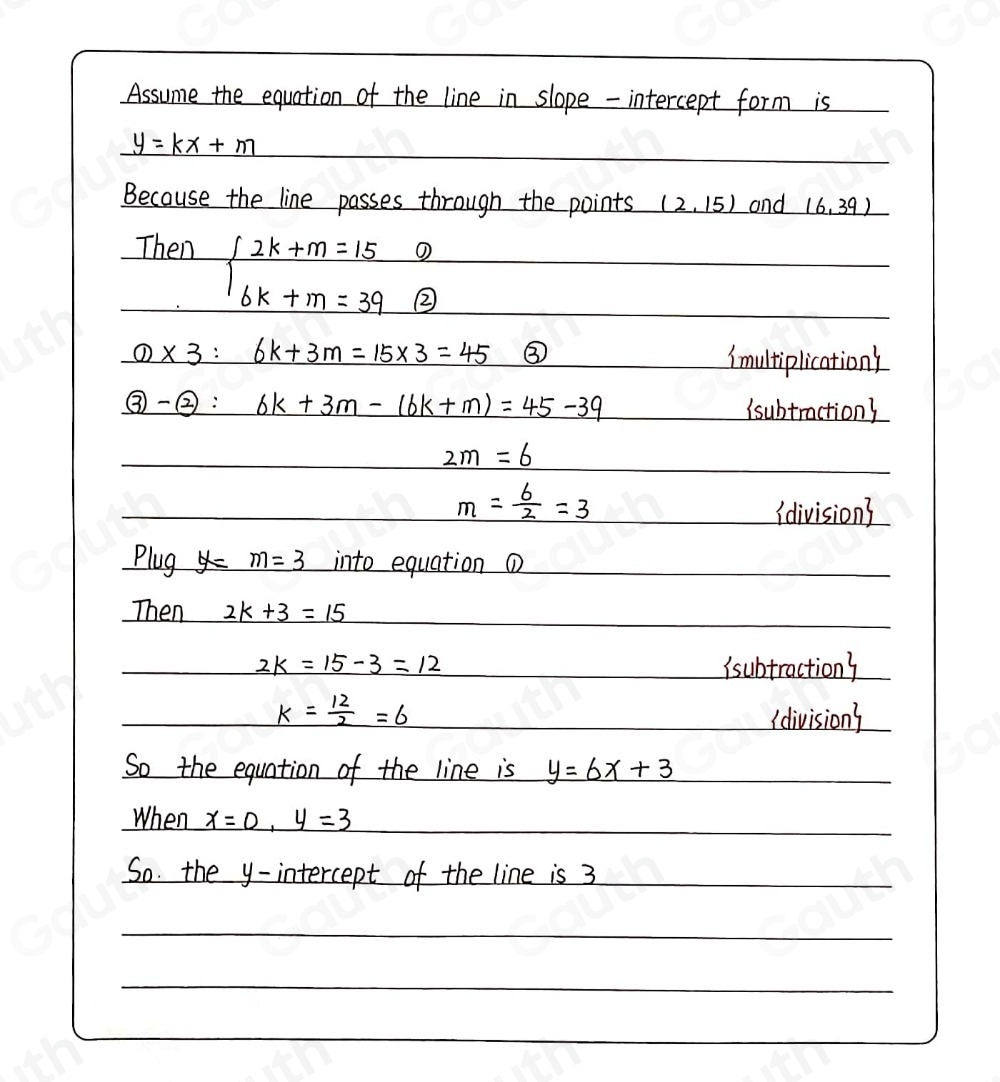 Assume the equation of the line in slope-intercept form is
y = kx + m
Because the line passes through the points (2,15) and (6,39)
Then { 2k + m = 15 ①
6k + m = 39 ②
① × 3 : 6k + 3m = 15 × 3 = 45 ③ {multiplication}
③ - ② : 6k + 3m - (6k + m) = 45 - 39 {subtraction}
2m = 6
m = 6/2 = 3 {division}
Plug m = 3 into equation ①
Then 2k + 3 = 15
2k = 15 - 3 = 12 {subtraction}
k = 12/2 = 6 {division}
So the equation of the line is y = 6x + 3
When x = 0, y = 3
So. the y-intercept of the line is 3
Gauth